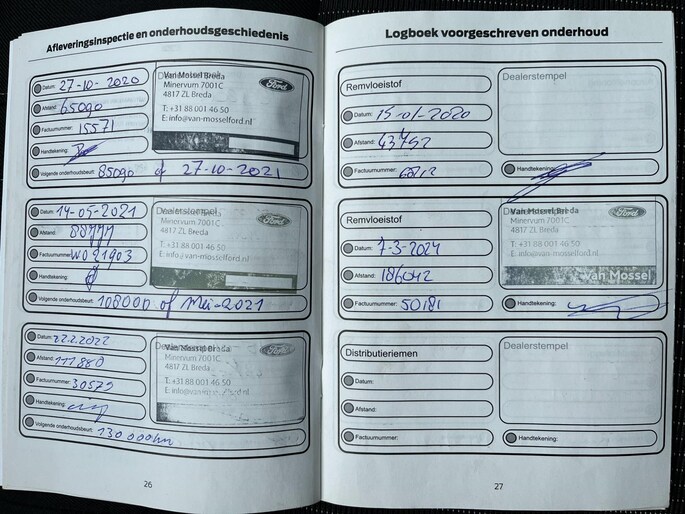 Afleveringsinspectie en onderhoudsgeschiedenis
Datum: 27-10-2020
Afstand: 65090
Factuurnummer: 15571
Handtekening:
Volgende onderhoudsbeurt: 85090 of 27-10-2021
Van Mossel Breda
Minervum 7001C
4817 ZL Breda
Ford
T: +31 88 001 46 50
E: info@van-mosselford.nl
Datum: 14-05-2021
Afstand: 88777
Factuurnummer: WO21903
Handtekening:
Volgende onderhoudsbeurt: 108000 of Mei-2021
Dealerstempel
Minervum 7001C
4817 ZL Breda
Ford
T: +31 88 001 46 50
E: info@van-mosselford.nl
Datum: 22.2.2022
Afstand: 111880
Factuurnummer: 30579
Handtekening:
Volgende onderhoudsbeurt: 130 000km
Van Mossel Breda
Minervum 7001C
4817 ZL Breda
Ford
T: +31 88 001 46 50
26
Logboek voorgeschreven onderhoud
Remvloeistof
Datum: 15-01-2020
Afstand:
Factuurnummer:
Dealerstempel
Handtekening:
Remvloeistof
Datum: 7-3-2024
Afstand: 186042
Factuurnummer: 50181
Van Mossel Breda
Minervum 7001C
4817 ZL Breda
Ford
T: +31 88 001 46 50
E: info@van-mosselford.nl
van Mossel
Handtekening:
Distributieriemen
Datum:
Afstand:
Factuurnummer:
Dealerstempel
Handtekening:
27